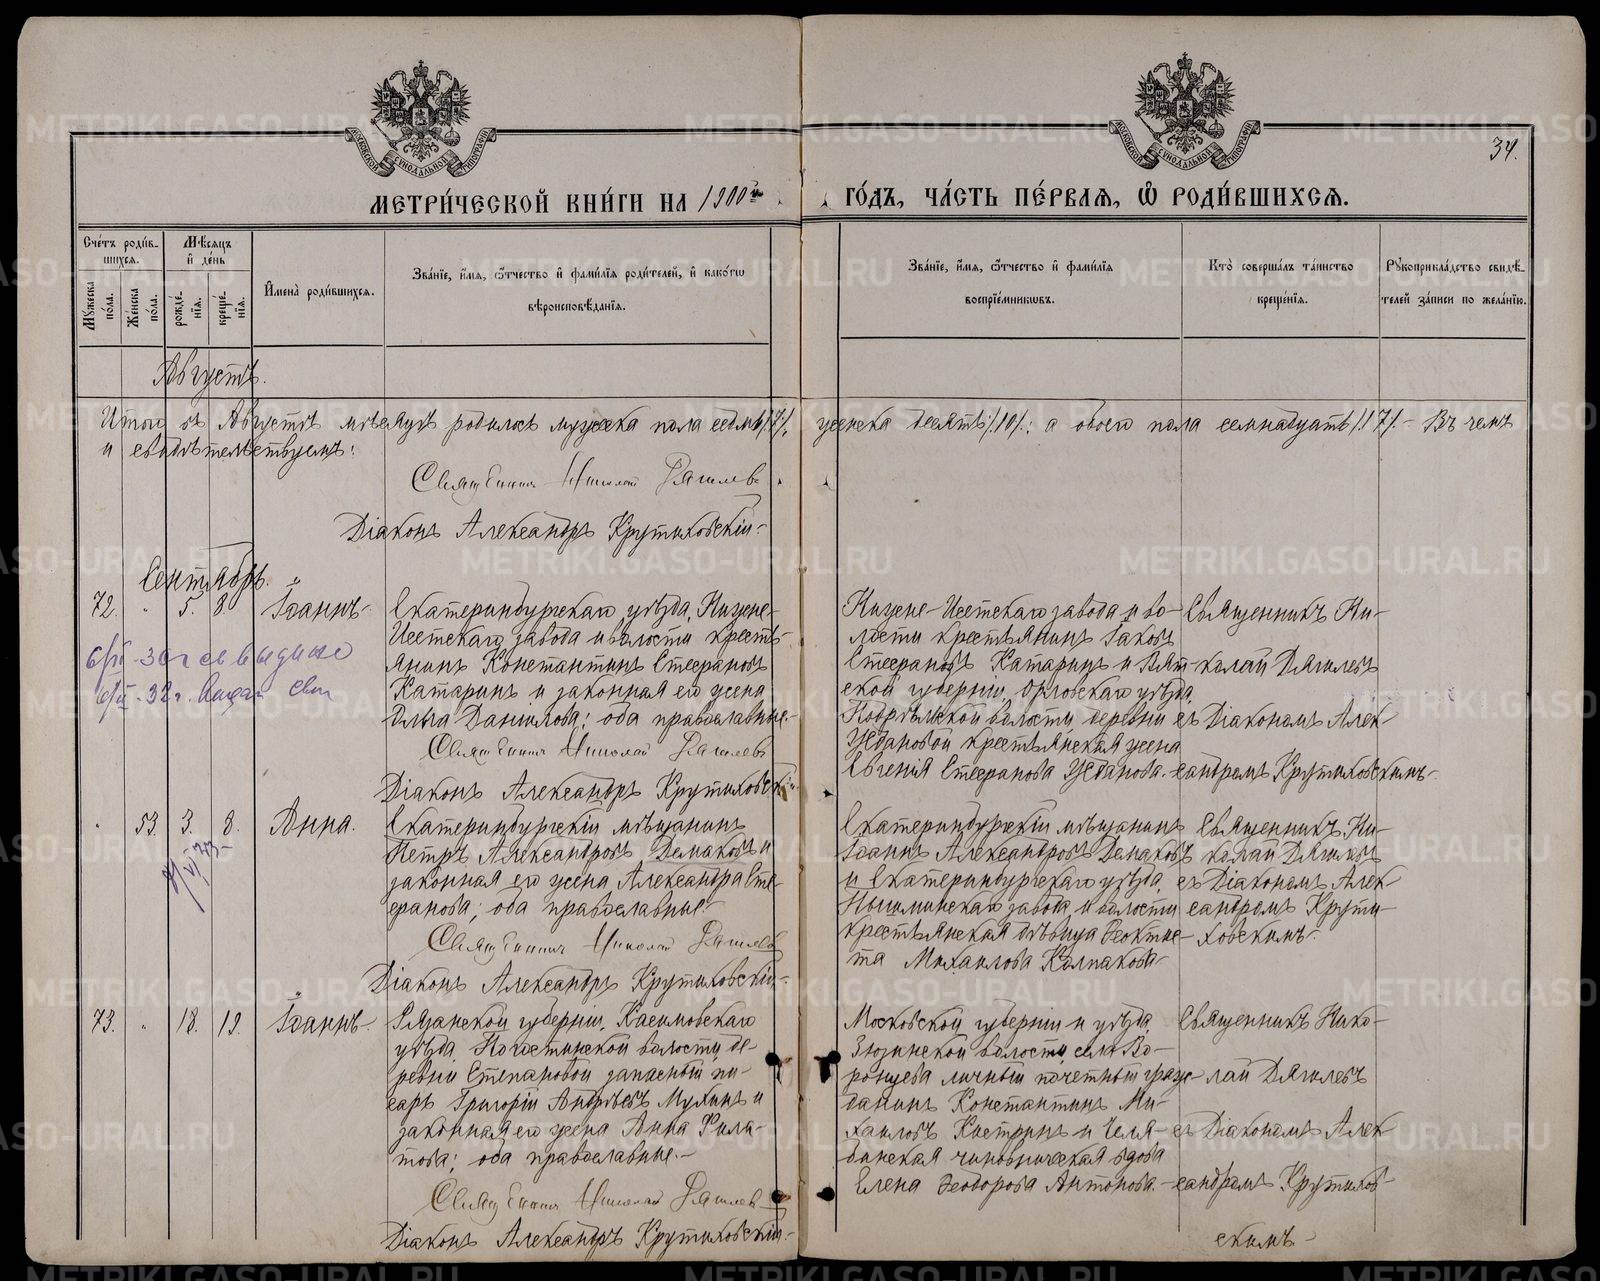 34.
МЕТРИ́ЧЕСКОЙ КНИ́ГИ НА 1900й ГО́ДЪ, ЧА́СТЬ ПЕ́РВАЯ, Ѡ РОДИ́ВШИХСЯ.
Сче́тъ роди́в-
шихся.
Мꙋ́жеска по́ла.
Же́нска по́ла.
Мѣ́сяцъ и де́нь
рожде́нія.
креще́нія.
Имена̀ роди́вшихся.
Зва́нїе, и́мя, ѻ́тчество и фами́лїя роди́телей, и како́гѡ
вѣроисповѣ́данїя.
Зва́нїе, и́мя, ѻ́тчество и фами́лїя
воспрїе́мникѡвъ.
Кто̀ соверша́лъ та́инство
креще́нїя.
Рꙋкоприкла́дство свидѣ́-
телей за́писи по жела́нїю.
Августъ.
Итого въ Августѣ мѣсяцѣ родилось мужеска пола седмь /7/, женска десять /10/: а обоего пола семнадцать /17/. – Въ чемъ
и свидѣтельствуемъ:
Священникъ Николай Дягилевъ
Діаконъ Александръ Крутиховскій.
Сентябрь.
72. " 5. 8. Іоаннъ
Екатеринбургскаго уѣзда, Нижне-
Исетскаго завода и волости кресть-
янинъ Константинъ Стефановъ
Катаринъ и законная его жена
Ольга Данилова; оба православные.
Священникъ Николай Дягилевъ
Діаконъ Александръ Крутиховскій.
Нижне-Исетскаго завода и во-
лости крестьянинъ Іаковъ
Стефановъ Катаринъ и Вят-
ской губерніи, Орловскаго уѣзда,
волости, деревни
Ждановой крестьянская жена
Евгенія Стефанова Жданова.
Священникъ Ни-
колай Дягилевъ
съ Діакономъ Алек-
сандромъ Крутиховскимъ
" 53. 3. 8. Анна.
Екатеринбургскій мѣщанинъ
Петръ Александровъ Демаковъ и
законная его жена Александра Сте-
фанова; оба православные.
Священникъ Николай Дягилевъ
Діаконъ Александръ Крутиховскій.
Екатеринбургскій мѣщанинъ
Іоаннъ Александровъ Демаковъ
и Екатеринбургскаго уѣзда,
Пышминскаго завода и волости
крестьянская дѣвица Феоктис-
та Михаилова Колпакова
Священникъ Ни-
колай Дягилевъ
съ Діакономъ Алек-
сандромъ Крути-
ховскимъ.
73. " 18. 19. Іоаннъ
Рязанской губерніи, Касимовскаго
уѣзда, Погостинской волости, де-
ревни Степановой запасный пи-
сарь Григорій Андреевъ Мухинъ и
законная его жена Анна Фила-
това; оба православные. –
Священникъ Николай Дягилевъ
Діаконъ Александръ Крутиховскій.
Московской губерніи и уѣзда,
Зюзинской волости, села Во-
ронцева личный почетный граж-
данинъ Константинъ Ми-
хаиловъ Костринъ и Челя-
бинская чиновническая вдова
Елена Феодорова Антонова.
Священникъ Нико-
лай Дягилевъ
съ Діакономъ Алек-
сандромъ Крутихов-
скимъ